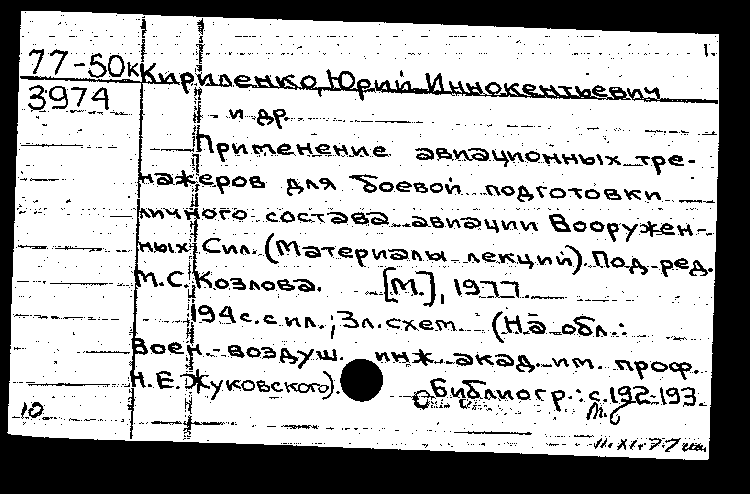 1.
77-50к Кириленко, Юрий Иннокентьевич
3974 и др.
Применение авиационных тре-
нажеров для боевой подготовки
личного состава авиации Вооружен-
ных Сил. (Материалы лекций) Под ред.
М.С. Козлова. [М.], 1977.
194 с. с ил.; 3 л. схем. (На обл.:
Воен.-воздуш. инж. акад. им. проф.
Н.Е. Жуковского). Библиогр.: с. 192-193.
10